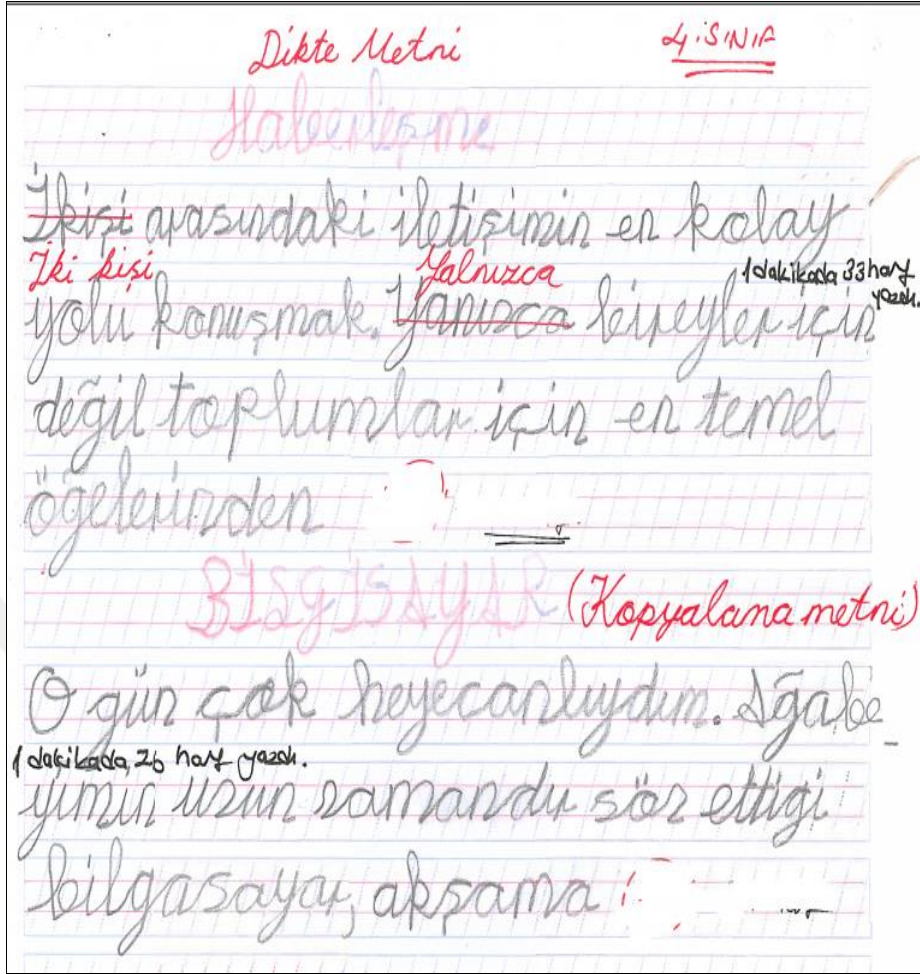 Dikte Metni 4.SINIF
Haberleşme
İkişi arasındaki iletişimin en kolay
İki kişi Yalnızca 1 dakikada 33 harf yazdı.
yolu konuşmak. Yanızca bireyler için
değil toplumlar için en temel
öğelerinden
BİLGİSAYAR (Kopyalama metni)
O gün çok heyecanlıydım. Ağabe
1 dakikada, 26 harf yazdı. -
yimin uzun zamandır söz ettiği
bilgasayar, akşama